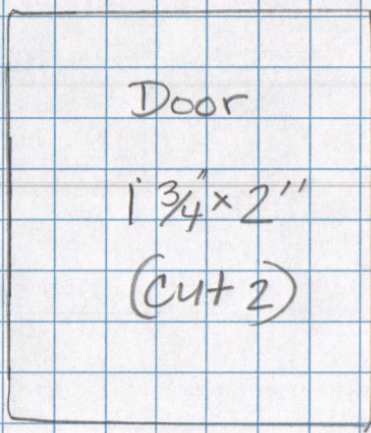 Door
1 3/4" × 2"
(cut 2)